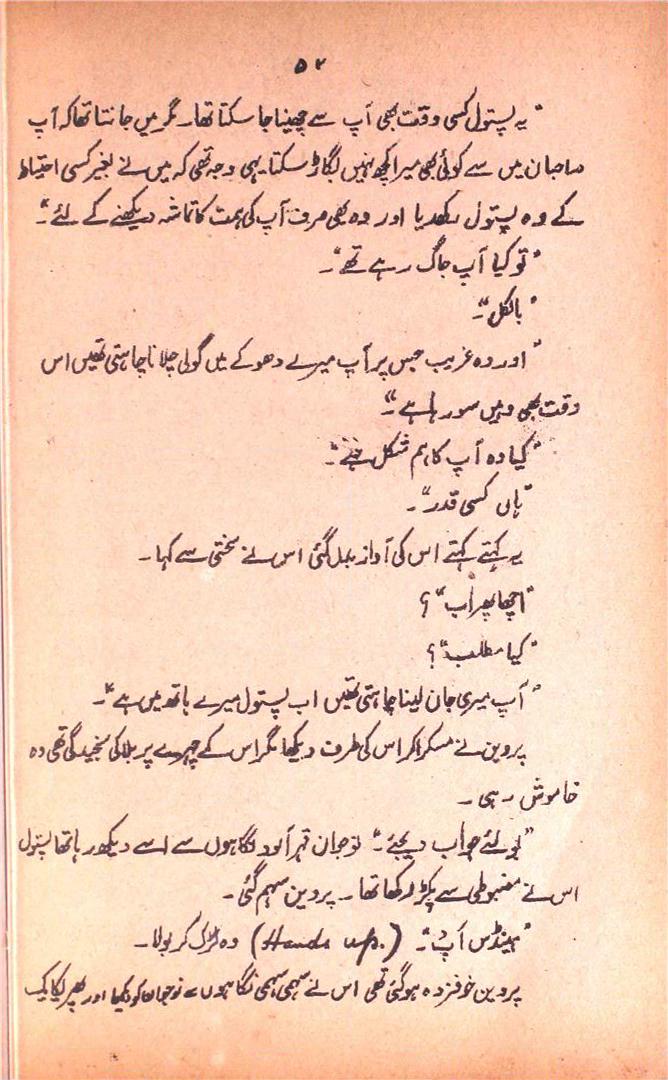 ۵۲
"یہ پستول کسی وقت بھی آپ سے چھینا جا سکتا تھا۔ مگر میں جانتا تھا کہ آپ
صاحبان میں سے کوئی بھی میرا کچھ نہیں بگاڑ سکتا۔ یہی وجہ تھی کہ میں نے بغیر کسی احتیاط
کے وہ پستول رکھ دیا اور وہ بھی صرف آپ کی ہمت کا تماشہ دیکھنے کے لئے"۔
"تو کیا آپ جاگ رہے تھے"۔
"بالکل"۔
"اور وہ غریب جس پر آپ میرے دھوکے میں گولی چلانا چاہتی تھیں اس
وقت بھی وہیں سو رہا ہے"۔
"کیا وہ آپ کا ہم شکل ہے"۔
"ہاں کسی قدر"۔
یہ کہتے کہتے اس کی آواز بدل گئی اس نے سختی سے کہا۔
"اچھا پھر اب"؟
"کیا مطلب"؟
"آپ میری جان لینا چاہتی تھیں اب پستول میرے ہاتھ میں ہے"۔
پروین نے مسکرا کر اس کی طرف دیکھا مگر اس کے چہرے پر بلا کی سنجیدگی تھی وہ
خاموش رہی۔
"بولئے جواب دیجئے"۔ نوجوان قہر آلود نگاہوں سے اسے دیکھ رہا تھا پستول
اس نے مضبوطی سے پکڑ رکھا تھا۔ پروین سہم گئی۔
"ہینڈس اَپ"۔ (Hands up.) وہ کڑک کر بولا۔
پروین خوفزدہ ہو گئی تھی اس نے سہمی سہمی نگاہوں سے نوجوان کو دیکھا اور پھر یکایک